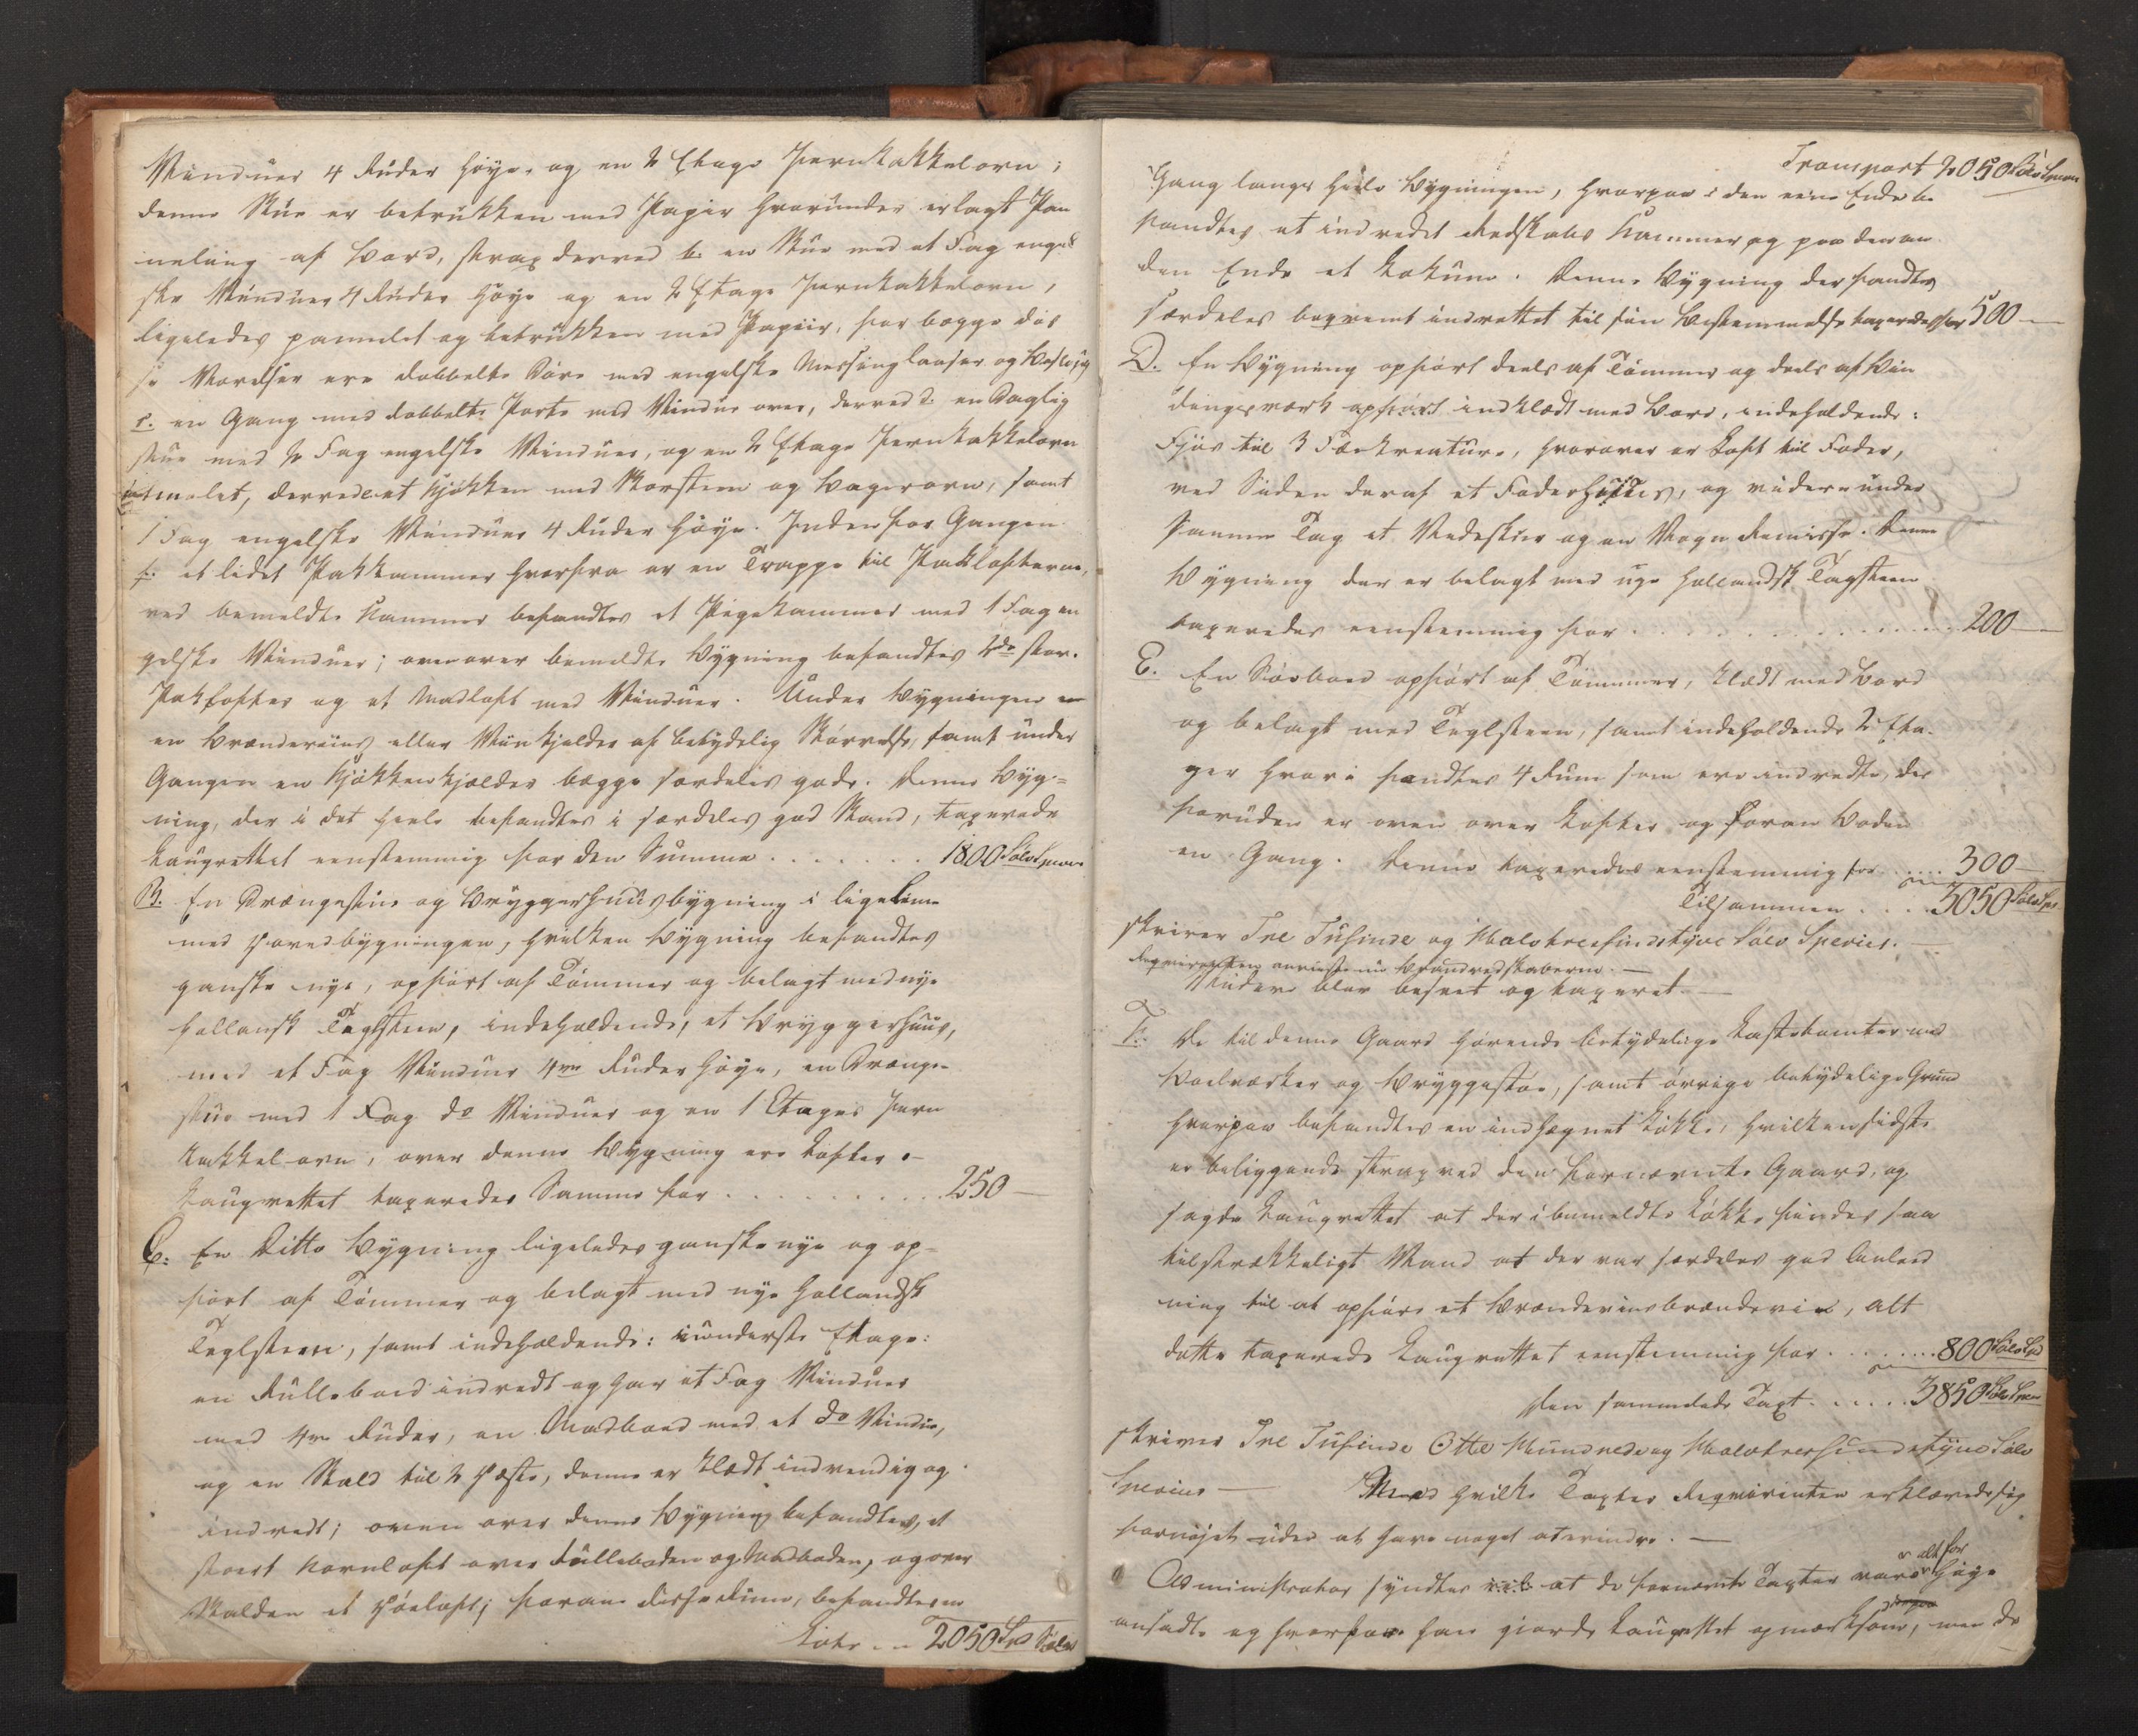 Vinduer 4 Ruder høye, og en 2 Etage Jernkakkelovn;
denne Stue er betrukken med Papir hvorunder er lagt Pan
neling af Bord, strax derved b. en Stue med et Fag engel
ske Vinduer 4 Ruder høye og en 2 Etage Jernkakkelovn,
ligeledes pannelet og betrukken med Papiir, for begge dis
se Værelser ere dobbelte Døre med engelske Messinglaaser og Beslag
c. en Gang med dobbelte Porte med Vindue over, derved d. en Daglig
stue med 2 Fag engelske Vinduer, og en 2 Etage Jernkakkelovn
malet, derved e. et Kjøkken med Skorsteen og Bagerovn, samt
1 Fag engelske Vinduer 4 Ruder høye. Indenfor Gangen
f. et lidet Pakkammer hvorfra er en Trappe til Pakloftterne,
ved bemeldte Kammer befandtes et Pigekammer med 1 Fag en
gelske Vinduer; ovenover bemeldte Bygning befandtes 2de store
Paklofter og et Madloft med Vinduer. Under Bygningen er
en Brænderiins eller Viinkjelder af betydelig Størrelse, samt under
Gangen en Kjøkkenkjælder begge særdeles gode. Denne Byg=
ning, der i det heele befandtes i særdeles god Stand, taxerede
Laugrettet eenstemmig for den Summa . . . . . . . 1800 Sølv Specier
B. En Drængestue og Bryggerhuusbygning i lige Linie
med Hovedbygningen, hvilken Bygning befandtes
ganske nye, opført af Tømmer og belagt med nye
hollansk Taglsteen, indeholdende, et Bryggerhuus,
med et Fag Vinduer 4re Ruder høye, en Drænge=
stue med 1 Fag do Vinduer og en 1 Etages Jern
kakkelovn, over denne Bygning ere Lofter.
Laugrettet taxeredes Samme for . . . . . . . . . . 250 —
C. En Ditto Bygning ligeledes ganske nye og op=
ført af Tømmer og belagt med nye hollandsk
Teglsteen, samt indeholdende: i underste Etage:
en Rullebod indredt og har et Fag Vinduer
med 4re Ruder, en Madbod med et do Vindue,
og en Stald til 2 Heste, denne er klædt indvendig og
indredt; oven over denne Bygning befandtes, et
stoert Kornloft over Rulleboden og Madboden, og over
Stalden et Høeloft; foran disse Rum, befandtes en
Lateris 2050 Spd Sølv
Transport 2050 Sølv Specier
Gang langs heele Bygningen, hvorpaa i den eene Ende be
fandtes et indredet Redskabs Kammer og paa den an
den Ende et Lokum. Denne Bygning der fandtes
særdeles beqvemt indrettet til sin Bestemmelse taxeredes for 500 —
D. En Bygning opført deels af Tømmer og deels af Bin
dingsværk opført indklædt med Bord, indeholdende:
Fjøs til 3 Fæekreature, hvorover er Loft til Foder,
ved Siden deraf et Foderhuus, og videre under
samme Tag et Vedeskur og en Vogn Remisse. Denne
Bygning der er belagt med nye hollandsk Tagsteen
taxeredes eenstemmig for . . . . . . . . . . . . . . . 200 —
E. En Søebod opført af Tømmer, klædt med Bord
og belagt med Teglsteen, samt indeholdende 2 Eta=
ger hvori fandtes 4 Rum som ere indredte, des
foruden er oven over Lofter og foran Boden
en Gang. Denne taxeredes eenstemmig for . . . . . 300 —
Tilsammen . . . . 3050 Sølv Spe
skriver Tre Tusinde og Halvtresindstyve Sølv Species. —
Reqvirenten anviiste nu Brandredskaberne. —
Videre blev beseet og taxeret. —
F. De til denne Gaard hørende betydelige Kastetomter med
Bolværker og Bryggestøe, samt øvrige betydelige Grund
hvorpaa befandtes en indhegnet Løkke, hvilken sidste
er beliggende strax ved den fornævnte Gaard, og
sagde Laugrettet at der i bemeldte Løkke findes saa
tilstrækkeligt Vand at der var særdeles god Anled
ning til at opføre et Brændeviinsbrænderie, alt
dette taxerede Laugrettet eenstemmig for . . . . . . . 800 Sølv Spd
Den sammelede Taxt . . . . . 3850 Sølv Specier
skriver Tre Tusinde Otte Hundrede og Halvtresindstyve Sølv
Specier — Med hvilke Taxter Reqvirenten erklærede sig
fornøjet uden at have noget at erindre. —
alt for
Administrator syndtes at de fornævnte Taxter vare høye
ansadte og hvorpaa han giorde Laugrettet opmærksom, men de